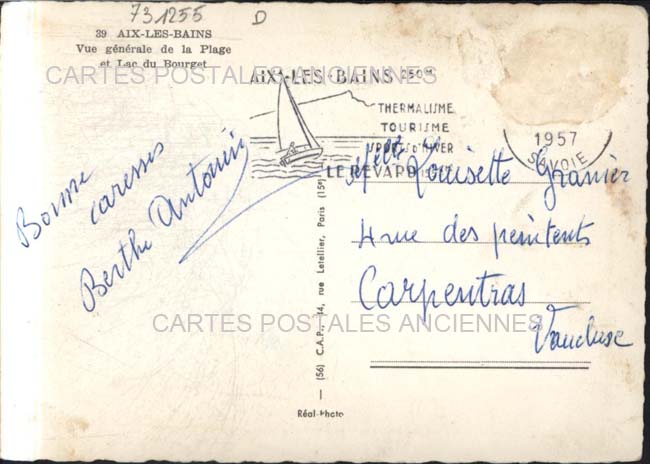 731255 D
39 AIX-LES-BAINS
Vue générale de la Plage
et Lac du Bourget
CARTES POSTALES ANCIENNES
AIX-LES-BAINS 250M
THERMALISME
TOURISME
SPORTS D'HIVER
LE REVARD
1957
SAVOIE
Bonne
caresses
Berthe Antonin
Melle Louisette Granier
4 rue des penitents
Carpentras
Vaucluse
CARTES POSTALES ANCIENNES
(56) C.A.P., 44, rue Letellier, Paris (15e)
Réal-Photo